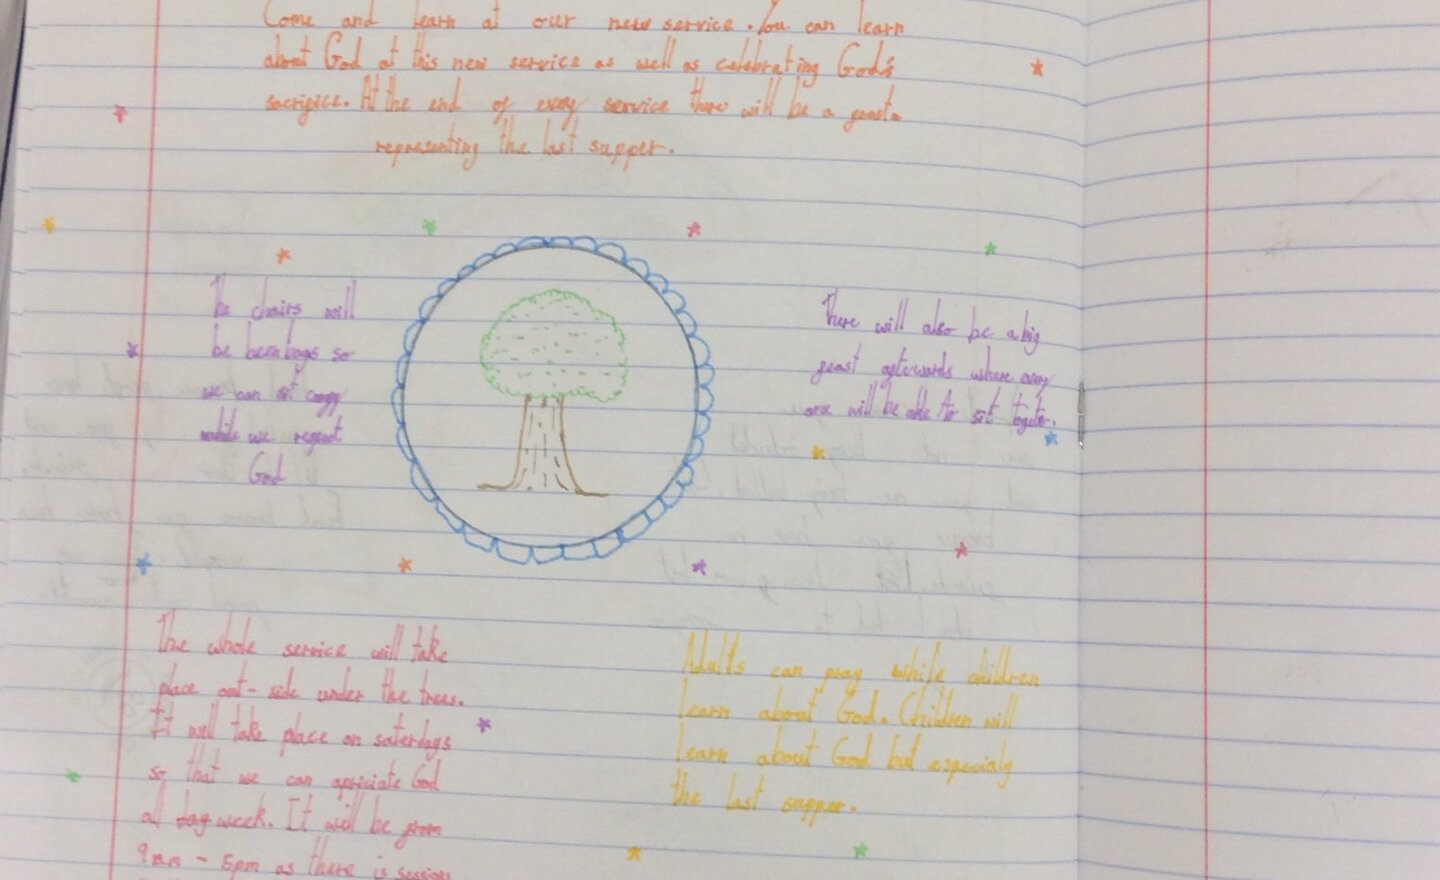 Come and learn at our new service. You can learn
about God at this new service as well as celebrating God's
sacrifice. At the end of every service there will be a feast
representing the last supper.
The chairs will
be beanbags so
we can sit comfy
while we
God
There will also be a big
feast afterwards where every
one will be able to sit together.
The whole service will take
place out-side under the trees.
It will take place on saterdays
so that we can apriciate God
all day week. It will be from
9am - 5pm as there is sessions
Adults can pray while children
learn about God. Children will
learn about God but especialy
the last supper.